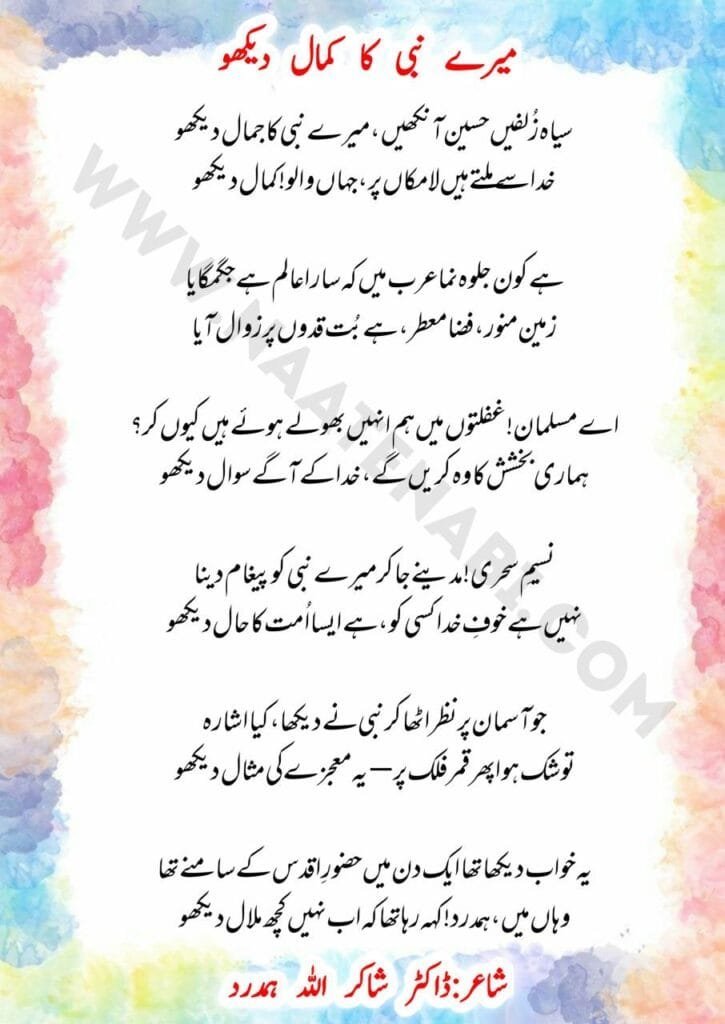 میرے نبی کا کمال دیکھو
سیاہ زُلفیں حسین آنکھیں، میرے نبی کا جمال دیکھو
خدا سے ملتے ہیں لامکاں پر، جہاں والو! کمال دیکھو
ہے کون جلوہ نما عرب میں کہ سارا عالم ہے جگمگایا
زمین منور، فضا معطر، ہے بُت قدوں پر زوال آیا
اے مسلمان! غفلتوں میں ہم انہیں بھولے ہوئے ہیں کیوں کر؟
ہماری بخشش کا وہ کریں گے، خدا کے آگے سوال دیکھو
نسیمِ سحری! مدینے جا کر میرے نبی کو پیغام دینا
نہیں ہے خوفِ خدا کسی کو، ہے ایسا اُمت کا حال دیکھو
جو آسمان پر نظر اٹھا کر نبی نے دیکھا، کیا اشارہ
تو شک ہوا پھر قمر فلک پر — یہ معجزے کی مثال دیکھو
یہ خواب دیکھا تھا ایک دن میں حضورِ اقدس کے سامنے تھا
وہاں میں، ہمدرد! کہہ رہا تھا کہ اب نہیں کچھ ملال دیکھو
شاعر: ڈاکٹر شاکر اللہ ہمدرد
WWW.NAATENABI.COM